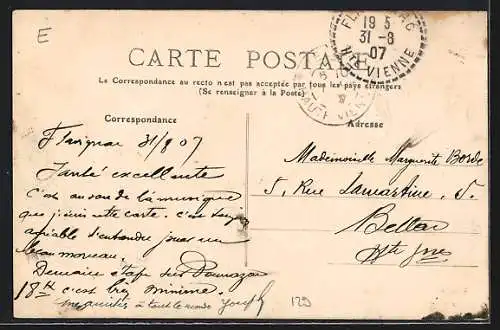 E
FLAVIGNAC
19 5
31-8
07
HTE VIENNE
CARTE POSTALE
La Correspondance au recto n'est pas acceptée par tous les pays étrangers
(Se renseigner à la Poste)
HAUTE VIENNE
Correspondance
Adresse
Flavignac 31/8 07
Santé excellente
C'est au son de la musique
que j'écris cette carte. c'est
agréable d'entendre jouer un
beau morceau.
Demain étape
18 c'est bien minime.
amitiés à tout le monde Joseph
Mademoiselle Marguerite Borde
5, Rue Lamartine, 5.
Bellac
Hte Vne
129